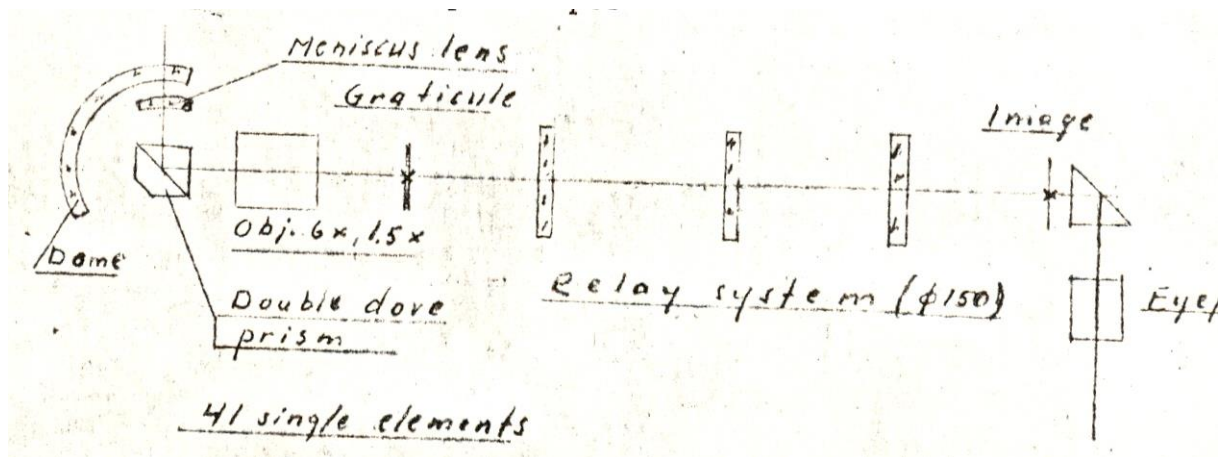 Meniscus lens
Graticule
Image
Dome
Obj. 6x, 1.5x
Double dove
prism
Relay system (ϕ150)
Eyep
41 single elements